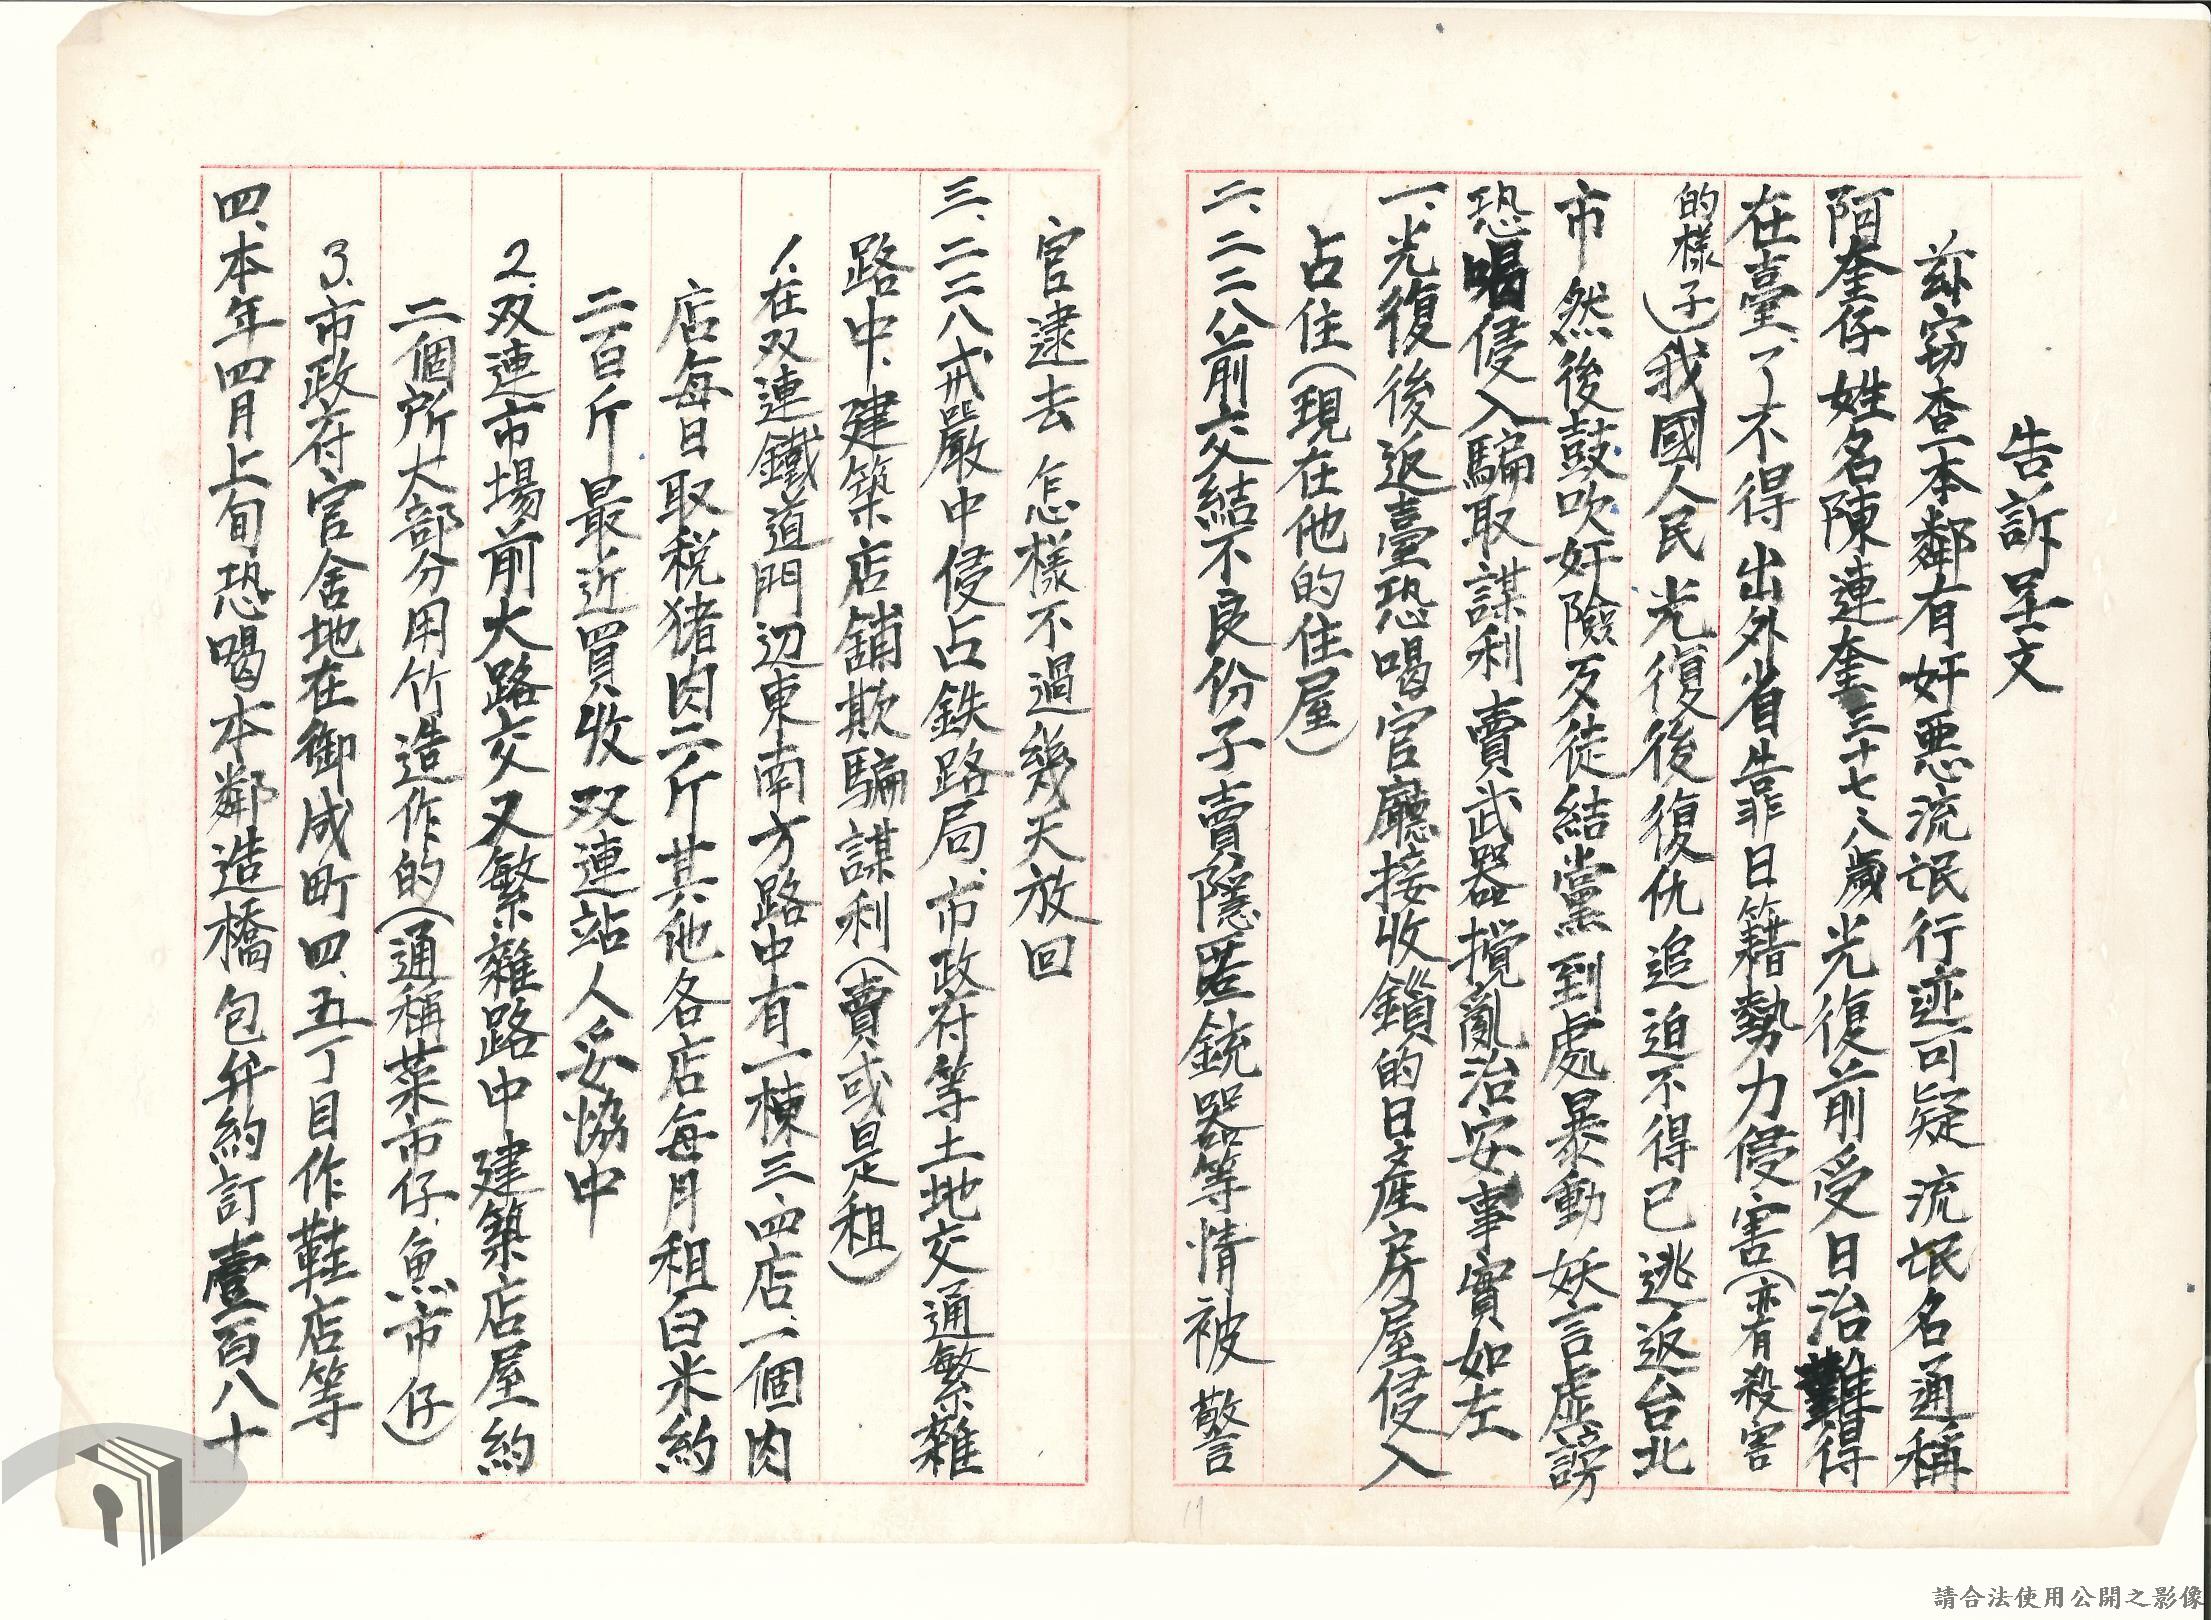 告訴呈文
茲窃查本鄰有奸悪流氓行迹可疑流氓名通稱
阿奎仔姓名陳連奎三十七、八歲光復前受日治難得
在臺、了不得出外省靠日籍勢力侵害(亦有殺害
的樣子)我國人民光復後復仇追迫不得已逃返台北
市然後鼓吹奸險歹徒結黨到處暴動妖言虛謗
恐喝侵入騙取謀利賣武器攪亂治安事實如左
一、光復後返臺恐喝官廳接收鎖的日產房屋侵入
占住(現在他的住屋)
二、二二八前交結不良份子賣隱匿銃器等情被警
官逮去怎樣不過幾天放回
三、二二八戒嚴中侵占鉄路局、市政府等土地交通繁雜
路中、建築店鋪欺騙謀利(賣或是租)
1、在双連鐵道門辺東南方路中有一棟三、四店、一個肉
店每日取税猪肉二斤其他各店每月租白米約
二百斤最近買收双連站人妥協中
2、双連市場前大路交叉繁雜路中建築店屋約
二個所大部分用竹造作的(通稱菜市仔、魚市仔)
3、市政府官舍地在御成町四、五丁目作鞋店等
四、本年四月上旬恐喝本鄰造橋包弁約訂壹百八十
11
請合法使用公開之影像